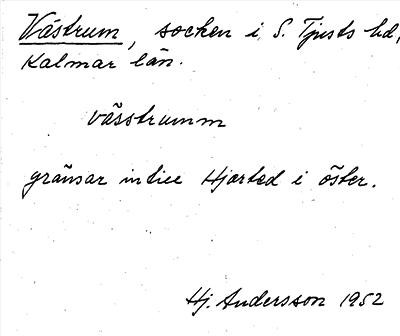 Västrum, socken i S. Tjusts hd,
Kalmar län.
västrumm
gränsar intill Hjorted i öster.
Hj. Andersson 1952